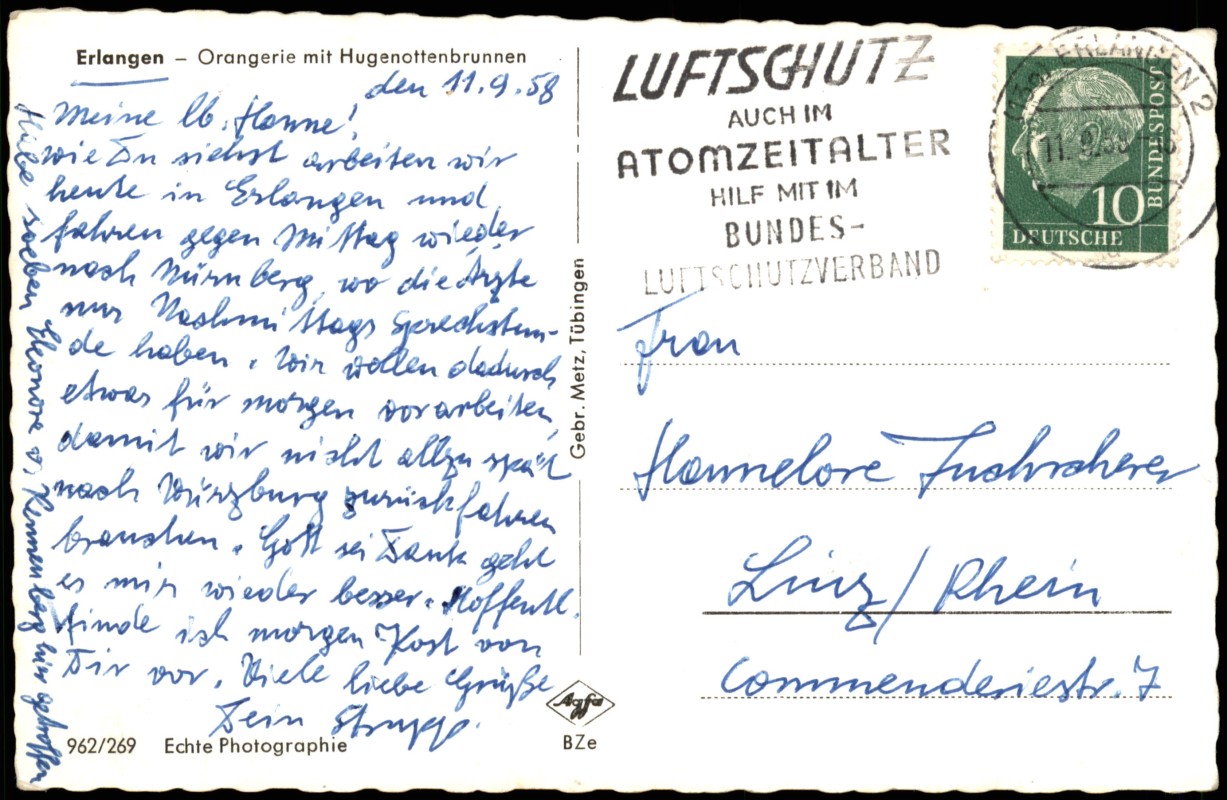 Erlangen – Orangerie mit Hugenottenbrunnen
den 11.9.58
Meine lb. Hanne!
wie Du siehst arbeiten wir
heute in Erlangen und
fahren gegen Mittag wieder
nach Nürnberg, wo die Ärzte
nur Nachmittags Sprechstun-
de haben. Wir wollen dadurch
etwas für morgen vorarbeiten,
damit wir nicht allzu spät
nach Würzburg zurückfahren
brauchen. Gott sei Dank geht
es mir wieder besser. Hoffentl.
finde ich morgen Post von
Dir vor. Viele liebe Grüße
Dein Strupp.
Habe soeben Eleonore v. Rennenberg hier getroffen
962/269 Echte Photographie
Gebr. Metz, Tübingen
Agfa
BZe
LUFTSCHUTZ
AUCH IM
ATOMZEITALTER
HILF MIT IM
BUNDES-
LUFTSCHUTZVERBAND
ERLANGEN 2
11.9.58
10
BUNDESPOST
DEUTSCHE
Frau
Hannelore Fuchscherer
Linz / Rhein
Commenderiestr. 7